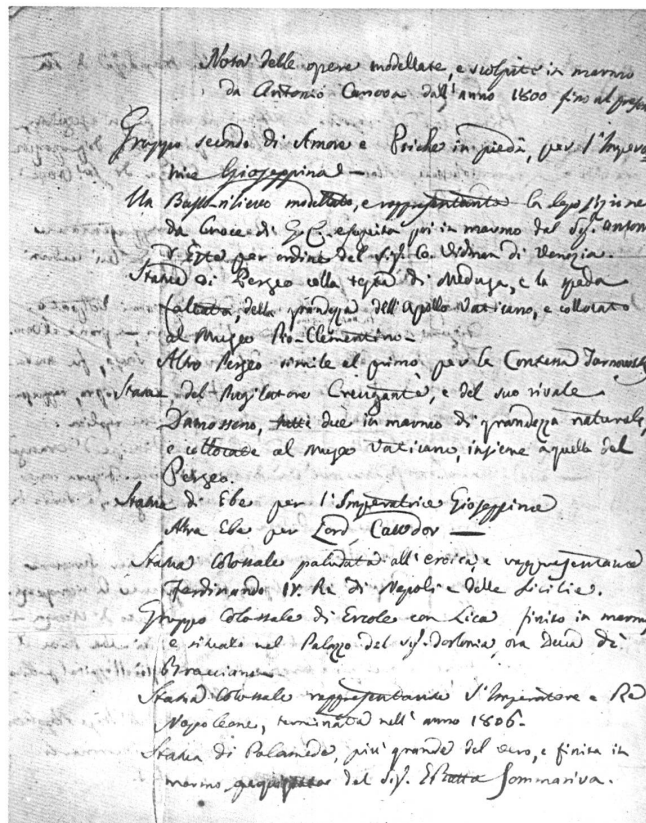 Nota delle opere modellate, e scolpite in marmo
da Antonio Canova dall'anno 1800 fino al presen
Gruppo secondo di Amore e Psiche in piedi, per l'Impera-
trice Gioseppina —
Un Basso-rilievo modellato, e rappresentante la deposizione
da Croce di G. C. eseguita poi in marmo dal Sig.r Antoni
d'Este per ordine del Sig. Co. Widman di Venezia.
Statua di Perseo colla testa di Meduza, e la spada
falcata, della grandezza dell'Apollo Vaticano, e collocato
al Museo Pio-Clementino.
Altro Perseo simile al primo per la Contessa Tarnowsky
Statua del Pugilatore Creugante, e del suo rivale
Damosseno, tutti due in marmo di grandezza naturale,
e collocate al Museo Vaticano, insieme a quella del
Perseo.
Statua di Ebe per l'Imperatrice Gioseppina
Altra Ebe per Lord Cawdor —
Statua Colossale paludata all'eroica, e rappresentante
Ferdinando IV. Re di Napoli e delle Sicilie.
Gruppo Colossale di Ercole con Lica finito in marmo
e situato nel Palazzo del Sig. Torlonia, ora Duca di
Bracciano
Statua Colossale rappresentante l'Imperatore e Re
Napoleone, terminata nell'anno 1806.
Statua di Palamede, più grande del vero, e finita in
marmo del Sig. Sommariva.